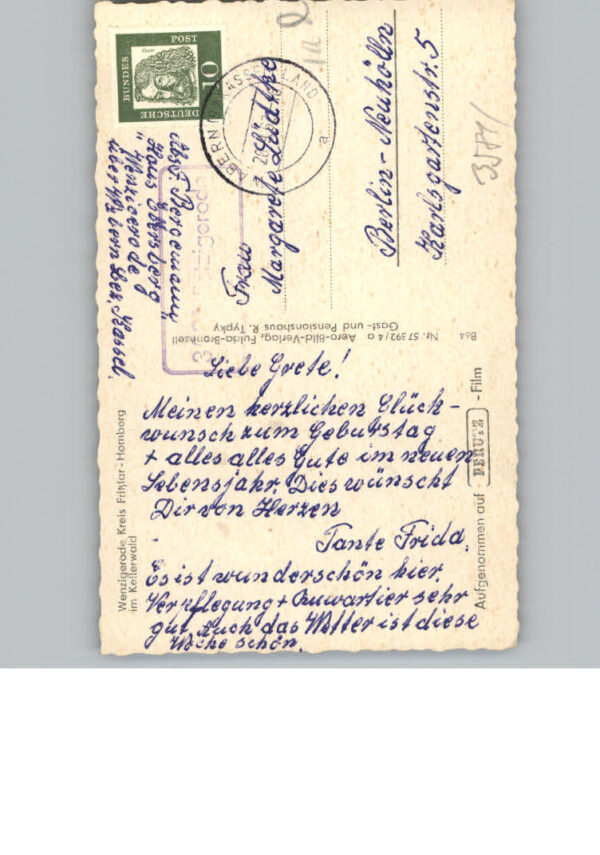 BUNDES
POST
DEUTSCHE
10
Dürer
ABERN
KASSEL-LAND
a
Wenzigerode
Frau
Margarete Lüdtke
Berlin-Neukölln
Karlsgartenstr. 5
3577/
Abs. F.
Haus
Wenzigerode
über Zabern Bez. Kassel.
B64 Nr. 57 397/4 a Aero-Bild-Verlag, Fulda-Bronnzell
Gast- und Pensionshaus R. Typky
Liebe Grete!
Meinen herzlichen Glück-
wunsch zum Geburtstag
+ alles alles Gute im neuen
Lebensjahr. Dies wünscht
Dir von Herzen
Tante Frida.
Es ist wunderschön hier.
Verpflegung + Quwartier sehr
gut. Auch das Wetter ist diese
Woche schön.
Wenzigerode, Kreis Fritzlar-Homberg
im Kellerwald
Aufgenommen auf PERUTZ -Film